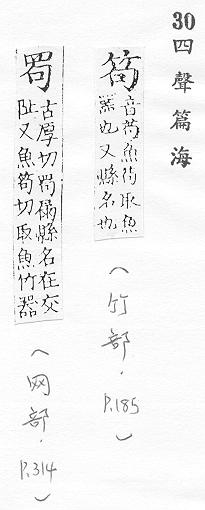 30 四聲篇海
笱
音苟魚笱取魚
器也又縣名也
(竹部. P.185)
古厚切縣名在交
趾又魚笱切取魚竹器
(网部. P.314)